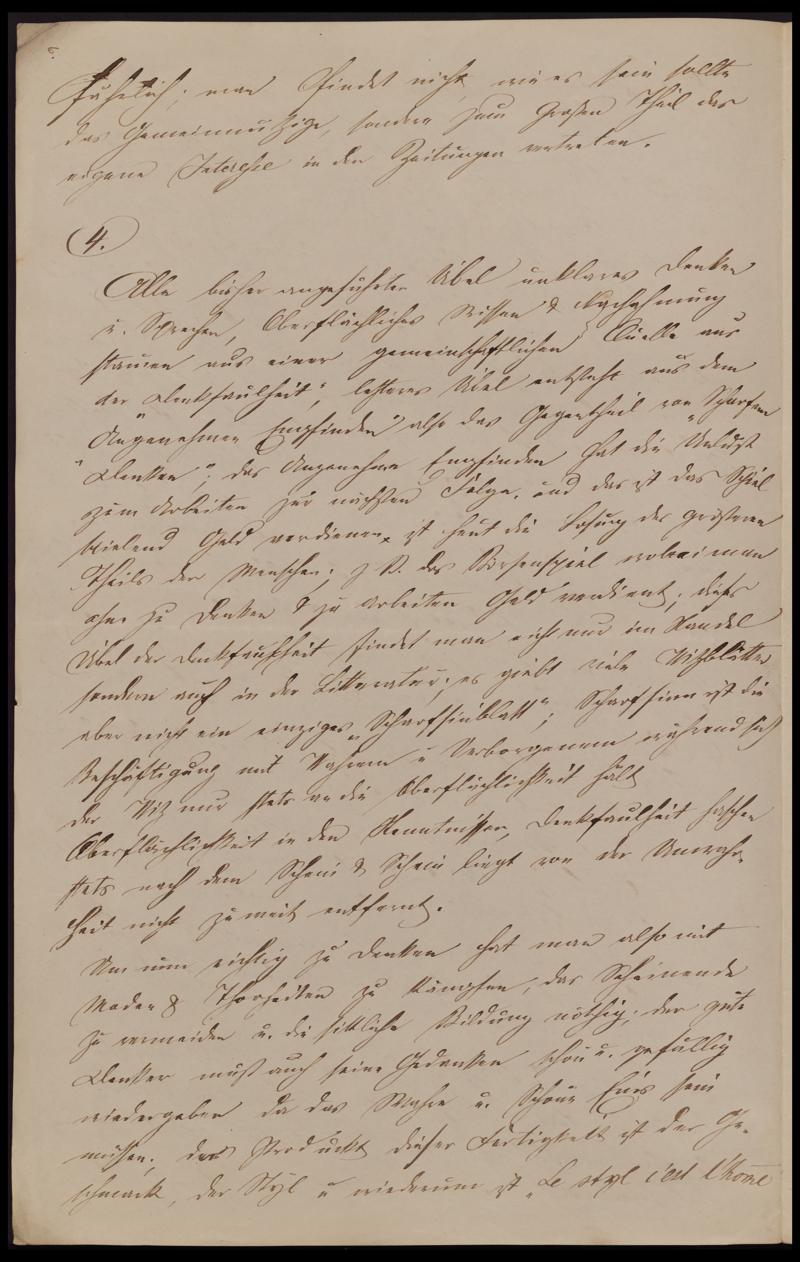 6.
fährlich; man findet nicht, wie es sein sollte
das Gemeinnützige, sondern zum Großen Theil das
eigene Interesse in den Zeitungen vertreten.
4.
Alle bisher angeführten Übel unklares Denken
u. Sprechen, Oberflächliches Wissen & Nachahmung
stamen aus einer gemeinschaftlichen Quelle aus
der "Denkfaulheit", letzteres Übel entsteht aus dem
"Angenehmen Empfinden" also das Gegentheil von "Scharfem
Denken"; das Angenehme Empfinden hat die Unlust
zum Arbeiten zur nächsten Folge, und das ist das Ziel
spielend Geld verdienen, ist heut die Losung des grösseren
Theils der Menschen; z. B. das Börsenspiel wobei man
ohne zu Denken & zu Arbeiten Geld verdient; dieses
Übel der Denkfaulheit findet man nicht nur im Handel
sondern auch in der Litteratur; es giebt viele Witzblätter
aber nicht ein einziges "Scharfsinblatt"; Scharfsinn ist die
Beschäftigung mit Wahrem u Verborgenem während sich
der Witz nur stets an die Oberflächlichkeit hält
Oberflächlichkeit in den Kenntnissen, Denkfaulheit haschen
stets nach dem Schein & Schein liegt von der Unwahr-
heit nicht zu weit entfernt.
Um nun richtig zu Denken hat man also mit
Moden & Thorheiten zu kämpfen, das Scheinende
zu vermeiden u. die sittliche Bildung nöthig; der gute
Denker muß auch seine Gedanken schön u. gefällig
wiedergeben da das Wahre u. Schöne Eins sein
müssen; das Produckt dieser Fertigkeit ist der Ge-
schmack, der Styl u wiederum ist "Le styl c'est l'home